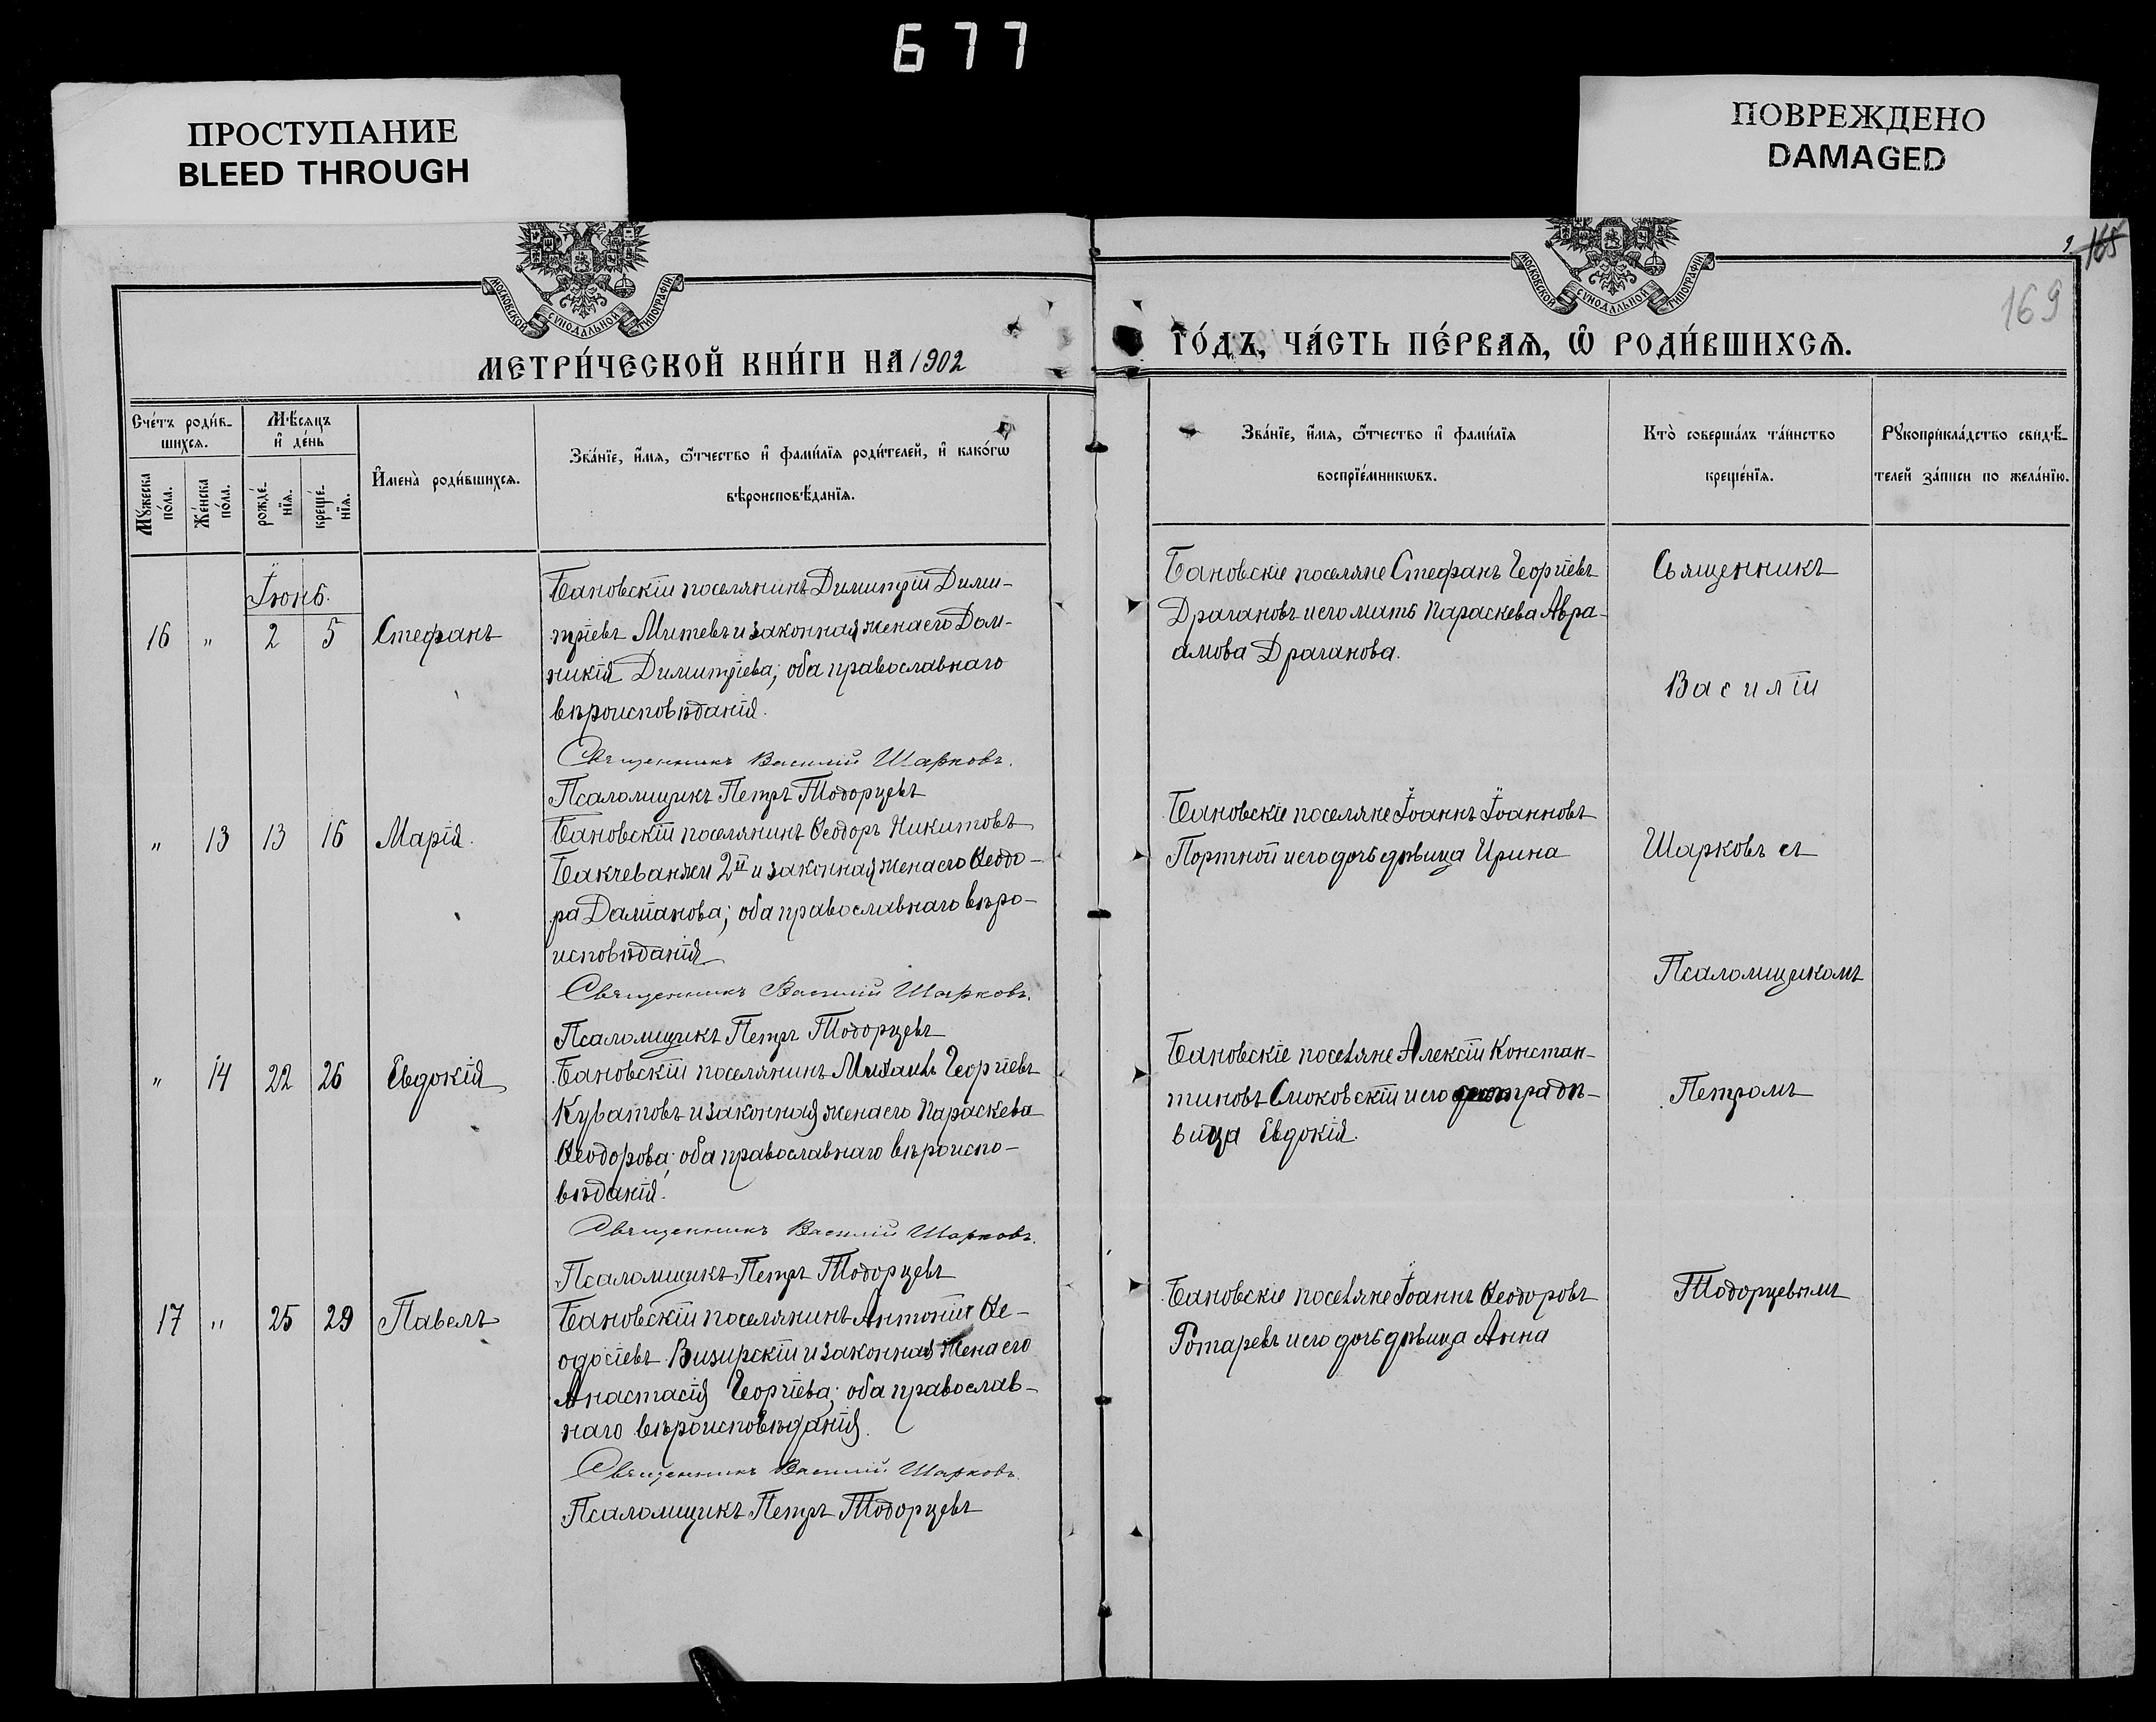 677
ПРОСТУПАНИЕ
BLEED THROUGH
ПОВРЕЖДЕНО
DAMAGED
МОСКОВСКОЙ СѴНОДАЛЬНОЙ ТИПОГРАФІИ
МОСКОВСКОЙ СѴНОДАЛЬНОЙ ТИПОГРАФІИ
165
169
МЕТРИ́ЧЕСКОЙ КНИ́ГИ НА 1902
ГО́ДЪ, ЧА́СТЬ ПЕ́РВАѦ, Ѽ РОДИ́ВШИХСѦ.
Счéтъ роди́в-
шихсѧ.
Мꙋ́жеска
по́ла.
Же́нска
по́ла.
Мѣ́сѧцъ
и҆ де́нь
рожде́-
нїѧ.
креще́-
нїѧ.
И҆мена̀ роди́вшихсѧ.
Зва́нїе, и҆́мѧ, ѻ҆́тчество и҆ фами́лїѧ роди́телей, и҆ како́гѡ
вѣроисповѣ́данїѧ.
Зва́нїе, и҆́мѧ, ѻ҆́тчество и҆ фами́лїѧ
воспрїе́мникѡвъ.
Кто̀ соверша́лъ та́инство
креще́нїѧ.
Рꙋкоприкла́дство свидѣ́-
телей за́писи по жела́нїю.
Іюнь.
16 " 2 5 Стефанъ
Бановскій поселянинъ Димитрій Дими-
тріевъ Митевъ и законная жена его Дом-
никія Димитріева; оба православнаго
вѣроисповѣданія.
Священникъ Василій Шарковъ.
Псаломщикъ Петръ Тодорцевъ
Бановскіе поселяне Стефанъ Георгіевъ
Драгановъ и его мать Параскева Авра-
амова Драганова.
" 13 13 16 Марія.
Бановскій поселянинъ Ѳеодоръ Никитовъ
Бакчеванжи 2й и законная жена его Ѳеодо-
ра Даміанова; оба православнаго вѣро-
исповѣданія
Священникъ Василій Шарковъ.
Псаломщикъ Петръ Тодорцевъ
Бановскіе поселяне Іоаннъ Іоанновъ
Портной и его дочь дѣвица Ирина
" 14 22 26 Евдокія
Бановскій поселянинъ Михаилъ Георгіевъ
Куватовъ и законная жена его Параскева
Ѳеодорова; оба православнаго вѣроиспо-
вѣданія.
Священникъ Василій Шарковъ.
Псаломщикъ Петръ Тодорцевъ
Бановскіе поселяне Алексій Констан-
тиновъ Смоковскій и его сестра дѣ-
вица Евдокія.
17 " 25 29 Павелъ
Бановскій поселянинъ Антоній Ѳе-
одосіевъ Визирскій и законная жена его
Анастасія Георгіева; оба православ-
наго вѣроисповѣданія.
Священникъ Василій Шарковъ.
Псаломщикъ Петръ Тодорцевъ
Бановскіе поселяне Іоаннъ Ѳеодоровъ
Ротаревъ и его дочь дѣвица Анна
Священникъ
Василій
Шарковъ съ
Псаломщикомъ
Петромъ
Тодорцевымъ